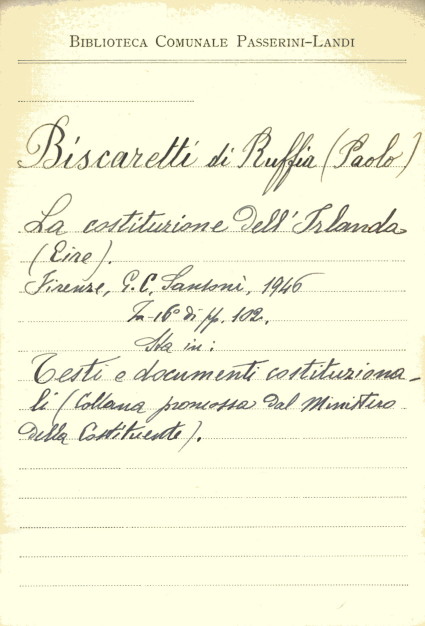 BIBLIOTECA COMUNALE PASSERINI-LANDI
Biscaretti di Ruffia (Paolo)
La costituzione dell'Irlanda
(Eire).
Firenze, G. C. Sansoni, 1946
In-16° di pp. 102.
Sta in:
Testi e documenti costituziona-
li (Collana promossa dal Ministero
della Costituente).